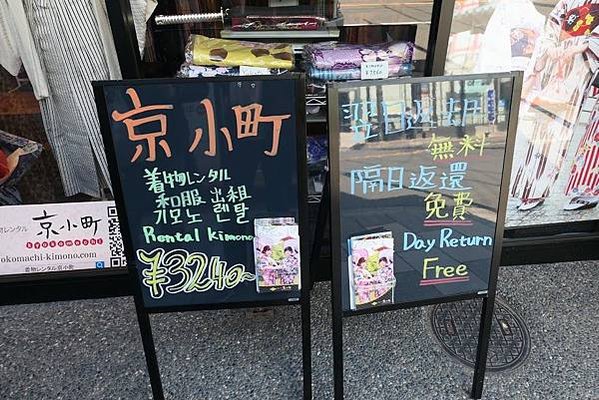 京小町
着物レンタル
和服出租
기모노 렌탈
Rental kimono
¥3240~
翌日返却
無料
隔日返還
免費
Day Return
Free
京小町
kyokomachi
okomachi-kimono.com
着物レンタル京小町
kimono